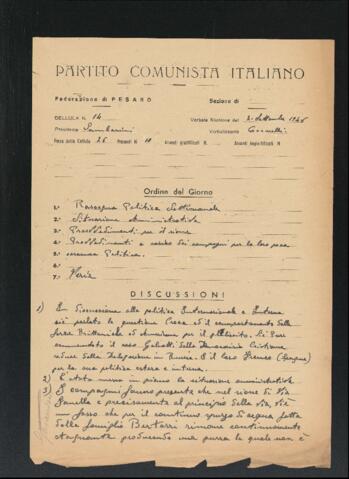 PARTITO COMUNISTA ITALIANO
Federazione di PESARO Sezione di
CELLULA N. 14 Verbale Riunione del
Presidente Verbalizzante
Forza della Cellula 26 Presenti N. 10 Assenti giustificati N. Assenti ingiustificati N.
Ordine del Giorno
1º Rassegna Politica Settimanale
2º Situazione Amministrativa
3º Provvedimenti per il rione
4º Provvedimenti a carico dei compagni per la loro
5º Politica.
6º
7º Varie
DISCUSSIONI
1) In discussione alla politica Internazionale e Interna
si è parlato la questione Greca ed il comportamento delle
forze Britanniche per il Plebiscito. Si è
commentato il caso Galiotti della Democrazia Cristiana
della Delegazione in Russia. E il caso
per la sua politica estera e interna.
2) È stata messa in piano la situazione amministrativa
3) I compagni fanno presente che nel rione di Via
e precisamente al principio della via vi è
un fosso che per il continuo spurgo di acqua fatta
dalla famiglia Bertozzi rimane continuamente
stagnante producendo una puzza la quale non è